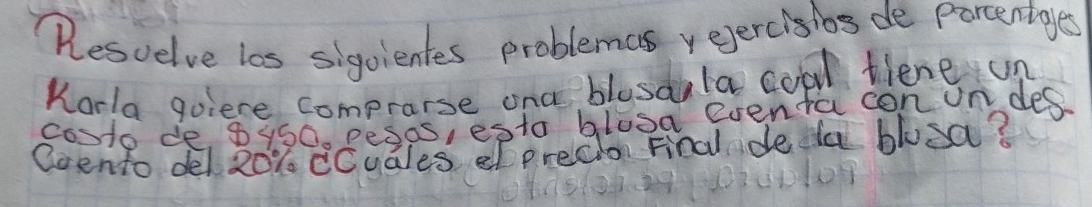 Resuelve los siguientes problemas y ejercisios de porcentajes
Karla quiere comprarse una blusa, la cual tiene un
costo de $450. pesos, esta blusa cuenta con un des-
Cuento del 20% ¿Cuál es el precio Final de la blusa?